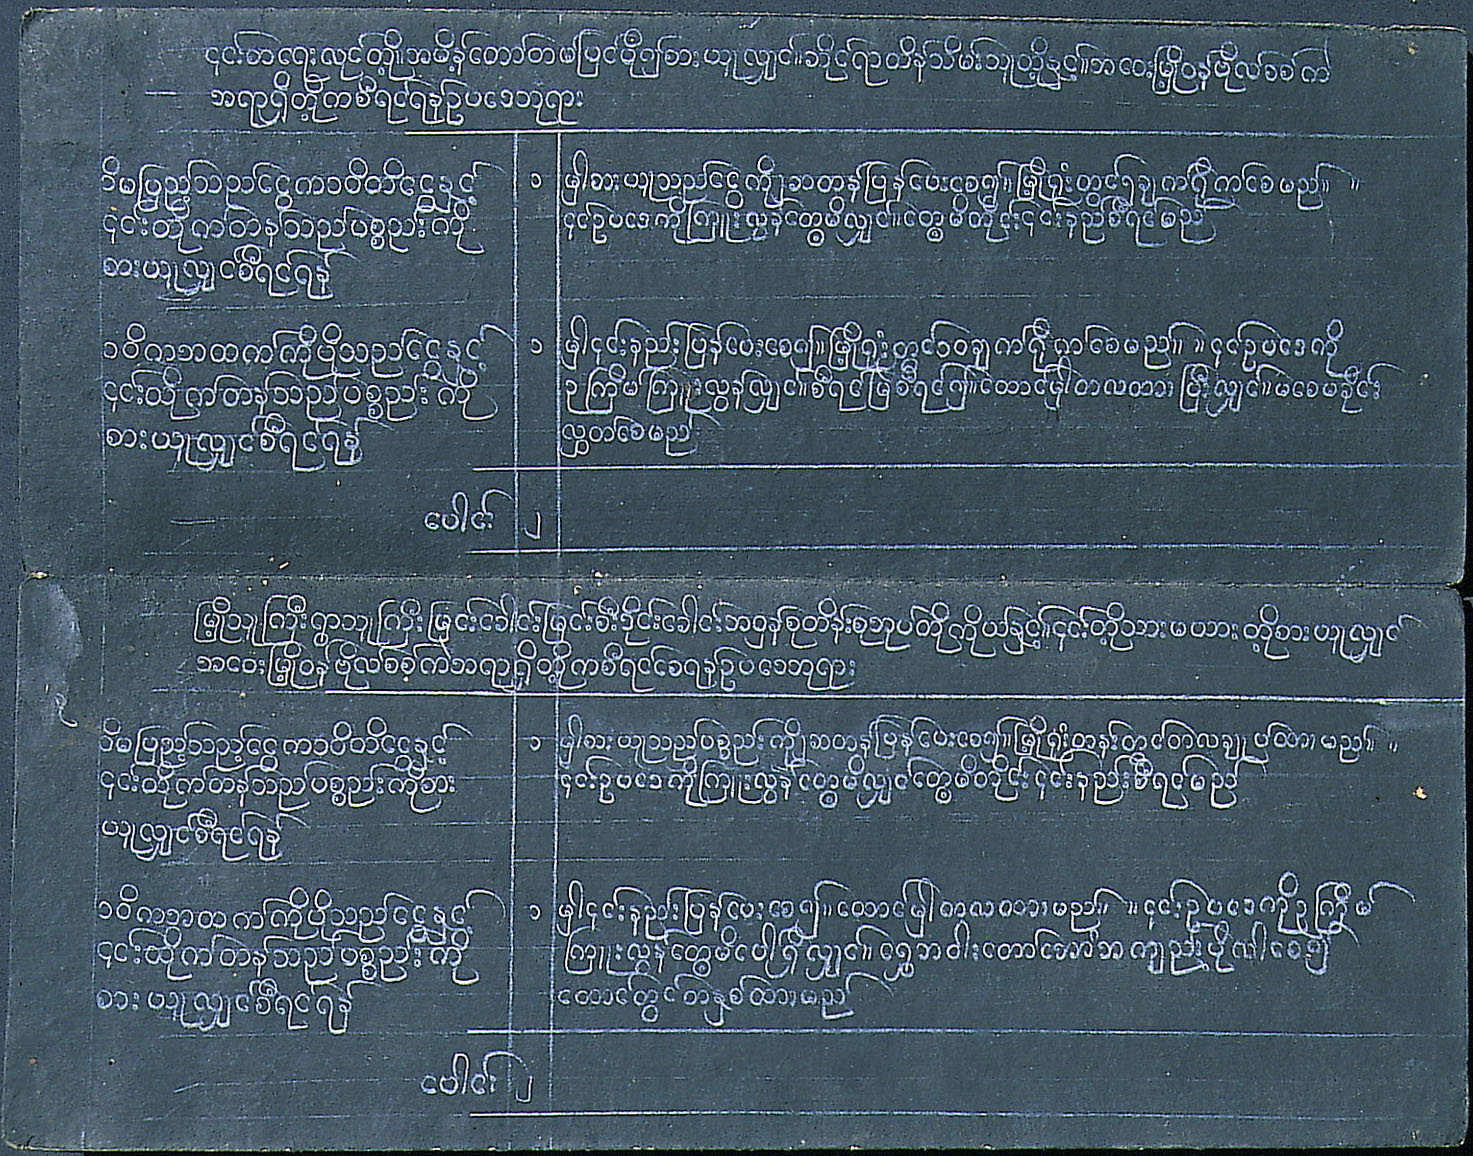 ၎င်းစာရေးလုလင်တို့။အမိန့်တော်တမပြင်ပို၍စားယူလျှင်။ဆိုင်ရာထိန်းသိမ်းသူတို့နှင့်။အဝေးမြို့ဝန်ဗိုလ်စစ်ကဲ
အရာရှိတို့ကစီရင်ရန်ဥပဒေဘုရား
၁ိမပြည့်သည်ငွေကာဝိတိငွေနှင့်
၎င်းထိုက်တန်သည်ပစ္စည်းကို
စားယူလျှင်စီရင်ရန်
၁ မှုါစားယူသည်ငွေကို၂ဆတန်ပြန်ပေးစေ၍။မြို့ရုံးတွင်၅ချက်ရိုက်စေမည်။ ။
၎င်းဥပဒေကိုကြူးလွန်တွေ့မိလျှင်။တွေ့မိတိုင်း၎င်းနည်းစီရင်မည်
၁ဝိကအထက်ကိုပိုသည်ငွေနှင့်
၎င်းထိုက်တန်သည်ပစ္စည်းကို
စားယူလျှင်စီရင်ရန်
၁ မှုါ၎င်းနည်းပြန်ပေးစေ၍။မြို့ရုံးတွင်၁ဝချက်ရိုက်စေမည်။ ။၎င်းဥပဒေကို
၃ကြိမ်ကြူးလွန်လျှင်။စီရင်မြဲစီရင်၍။ထောင်မှါတလထား ပြီးလျှင်။မစေမခိုင်း
လွှတ်စေမည်
ပေါင်း ၂
မြို့သူကြီးရွာသူကြီးမြင်းခေါင်းမြင်းစီးဒိုင်းခေါင်းအဝန်စုထိန်းစုအုပ်တို့ကိုယ်နှင့်။၎င်းတို့သားမယားတို့စားယူလျှင်
အဝေးမြို့ဝန်ဗိုလ်စစ်ကဲအရာရှိတို့ကစီရင်စေရန်ဥပဒေဘုရား
၁ိမပြည့်သည့်ငွေကာဝိတိငွေနှင့်
၎င်းထိုက်တန်သည်ပစ္စည်းကိုစား
ယူလျှင်စီရင်ရန်
၁ မှုါစားယူသည်ပစ္စည်းကို၂ဆတန်ပြန်ပေးစေ၍။မြို့ရုံးတန်းတွင်တလချုပ်ထားမည်။ ။
၎င်းဥပဒေကိုကြူးလွန်တွေ့မိလျှင်တွေ့မိတိုင်း၎င်းနည်းစီရင်မည်
၁ဝိကအထက်ကိုပိုသည်ငွေနှင့်
၎င်းထိုက်တန်သည်ပစ္စည်းကို
စားယူလျှင်စီရင်ရန်
၁ မှုါ၎င်းနည်းပြန်ပေးစေ၍။ထောင်မှါတလထားမည်။ ။၎င်းဥပဒေကို၃ကြိမ်
ကြူးလွန်တွေ့မိပေါ်ရှိလျှင်။ရွှေဘဝါးတော်အောက်အကျဉ်းပို့လါစေ၍
ထောင်တွင်တနှစ်ထားမည်
ပေါင်း ၂